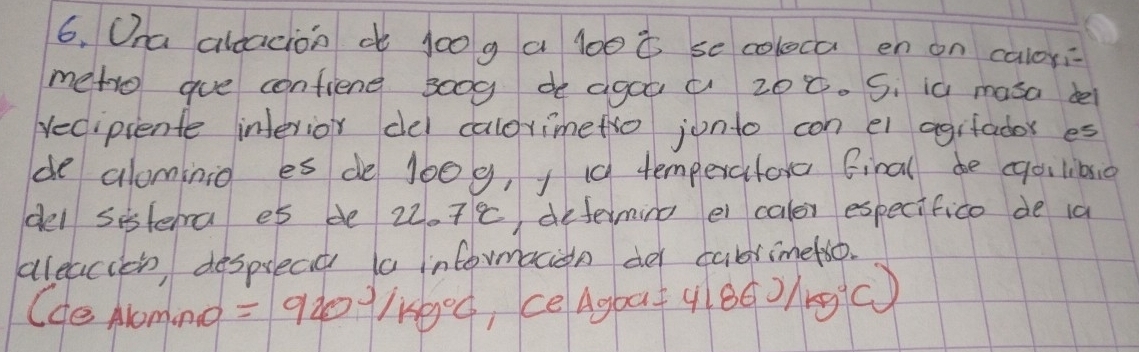 6. Una aleación de 100g a 100°C se coloca en un calorí-
metro que contiene 300g de agua a 20°C. Si la masa del
recipiente interior del calorímetro junto con el agitador es
de aluminio es de 100g, y la temperatura final de equilibrio
del sistema es de 22.7°C, determina el calor especifico de la
aleación, desprecia la información del calorimetro.
(Ce Aluminio = 920 J/kg°C, Ce Agua = 4186 J/kg°C)